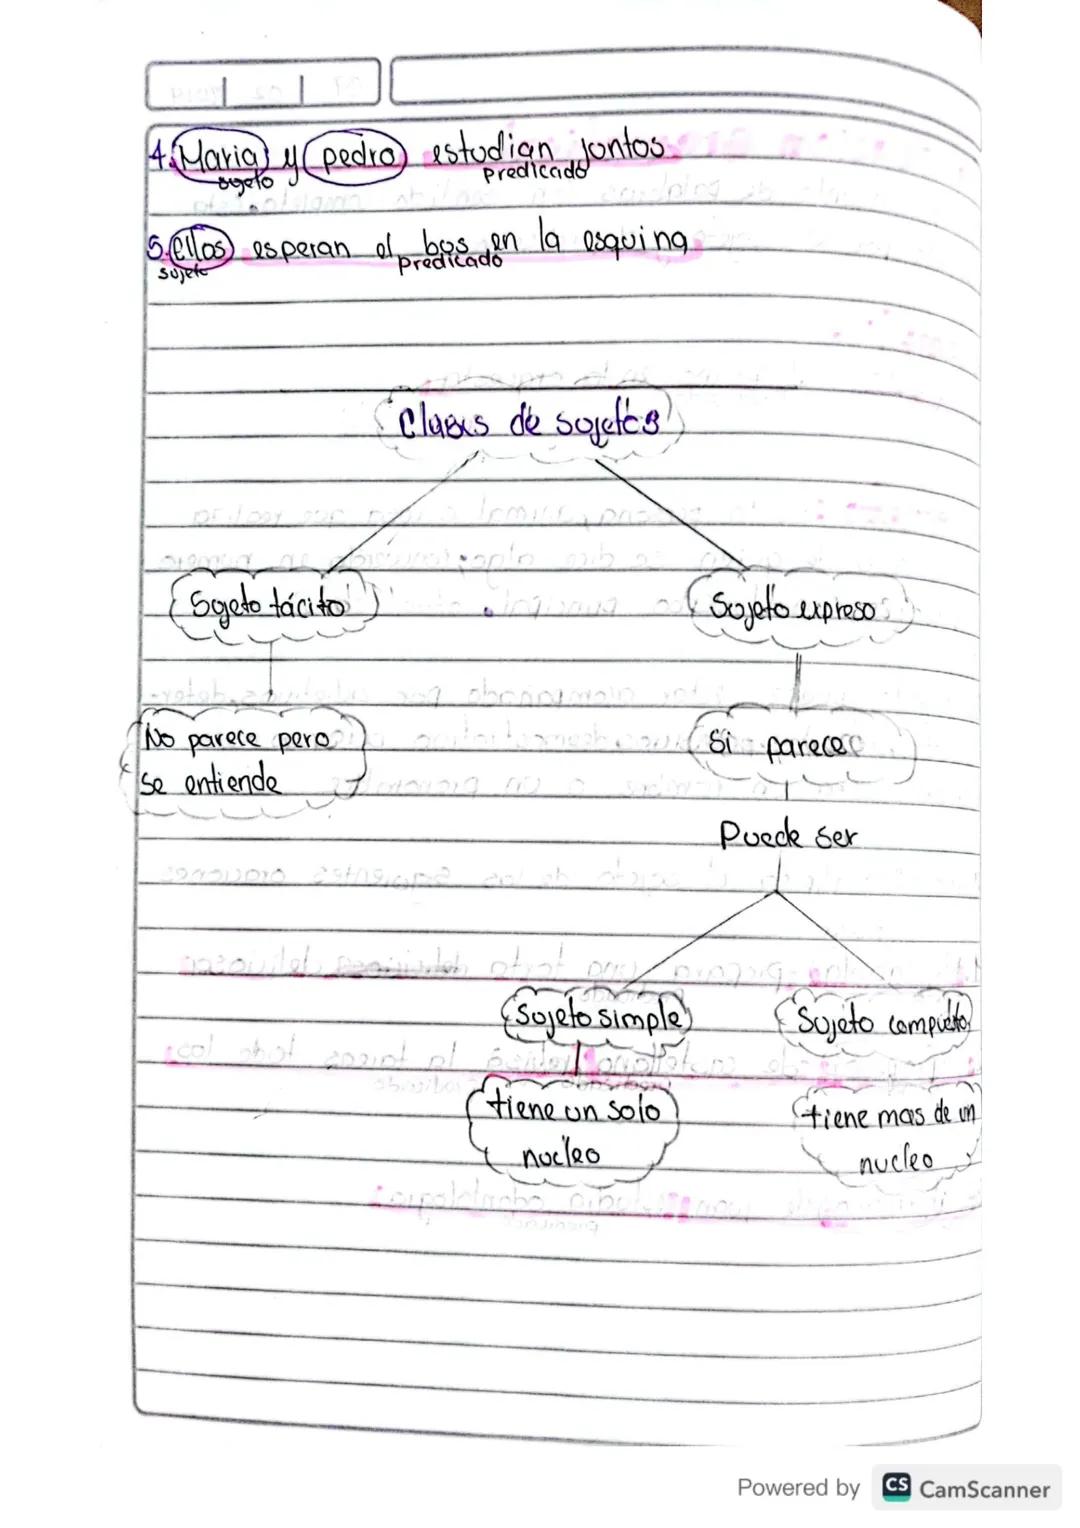 4. Maria y pedro estudian juntos
sujeto predicado
5. ellos esperan el bus en la esquina
sujeto predicado
Clases de sujetos
Sujeto tácito Sujeto expreso
No parece pero Si parece
se entiende
Puede ser
Sujeto simple Sujeto compuesto
tiene un solo tiene mas de un
nucleo nucleo
Powered by CS CamScanner